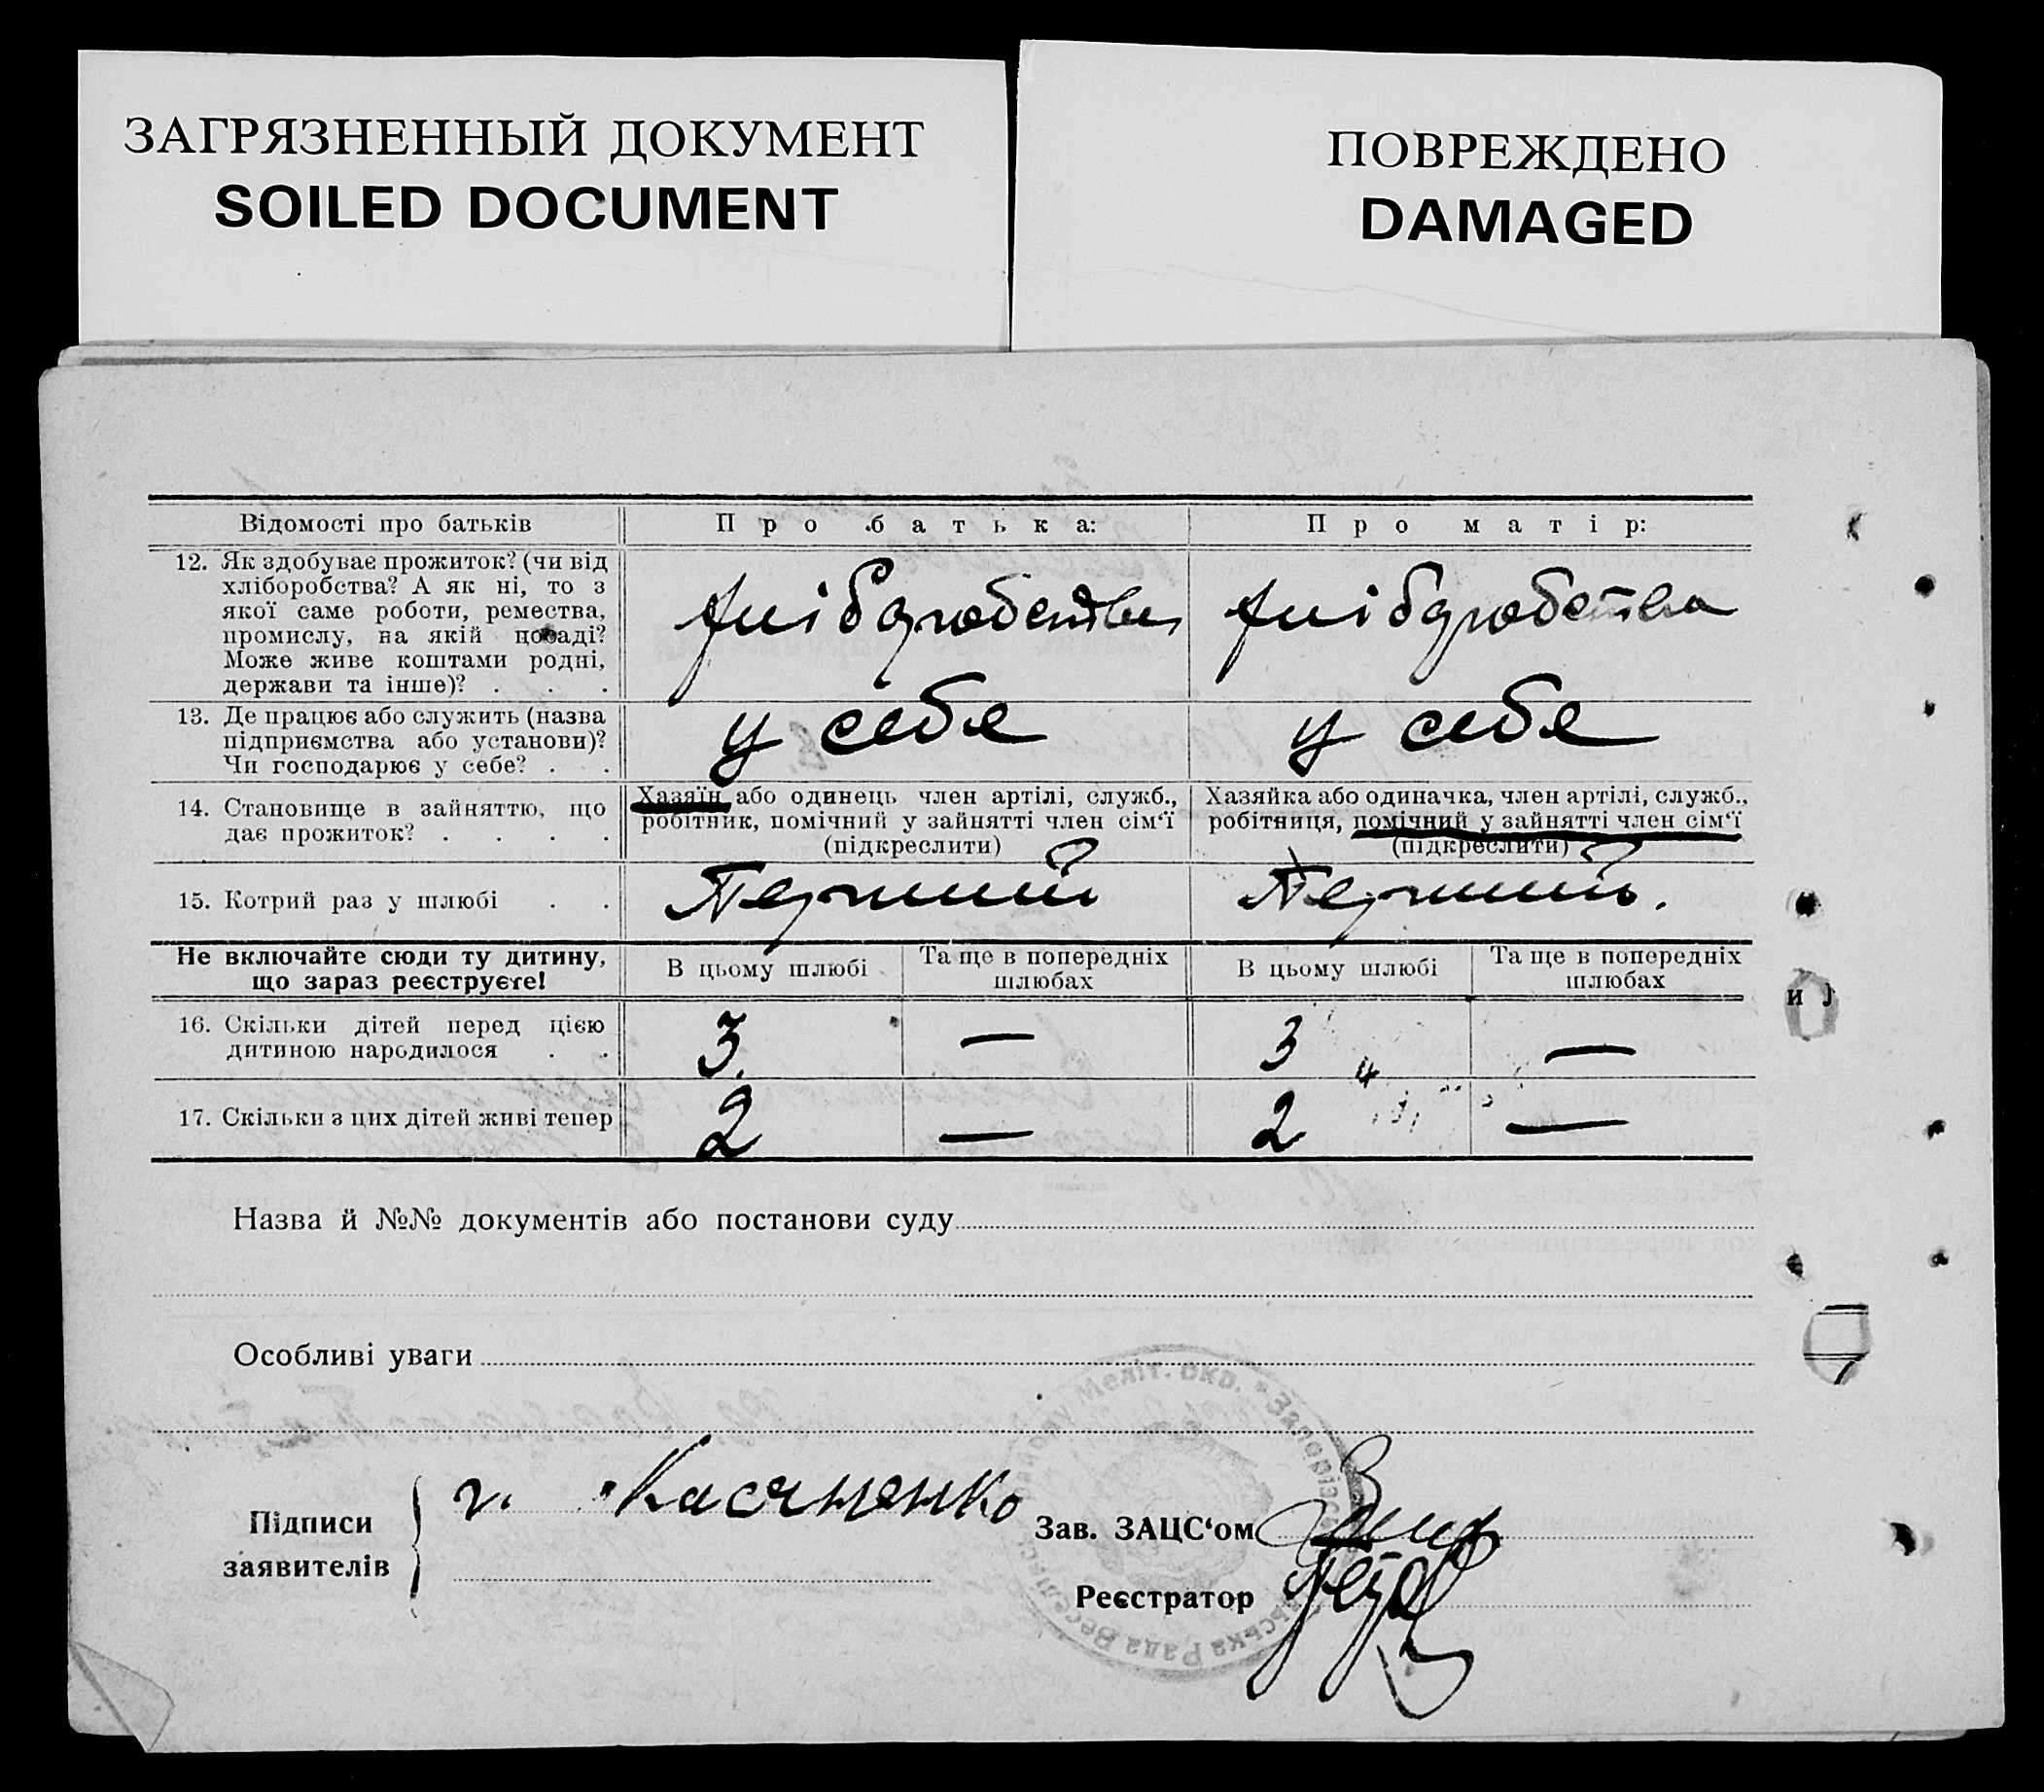 ЗАГРЯЗНЕННЫЙ ДОКУМЕНТ
SOILED DOCUMENT
ПОВРЕЖДЕНО
DAMAGED
Відомості про батьків
Про батька:
Про матір:
12. Як здобуває прожиток? (чи від
хліборобства? А як ні, то з
якої саме роботи, ремества,
промислу, на якій посаді?
Може живе коштами родні,
держави та інше)? . . .
хліборобства
хліборобства
13. Де працює або служить (назва
підприємства або установи)?
Чи господарює у себе? . .
у себе
у себе
14. Становище в зайняттю, що
дає прожиток? . . . .
Хазяїн або одинець член артілі, служб.,
робітник, помічний у зайнятті член сім‘ї
(підкреслити)
Хазяйка або одиначка, член артілі, служб.,
робітниця, помічний у зайнятті член сім‘ї
(підкреслити)
15. Котрий раз у шлюбі . .
Перший
Перший.
Не включайте сюди ту дитину,
що зараз реєструєте!
В цьому шлюбі
Та ще в попередніх
шлюбах
В цьому шлюбі
Та ще в попередніх
шлюбах
16. Скільки дітей перед цією
дитиною народилося . .
3
—
3
—
17. Скільки з цих дітей живі тепер
2
—
2
—
Назва й №№ документів або постанови суду
Особливі уваги
Підписи
заявителів
г. Касяненко
Зав. ЗАЦС‘ом
Реєстратор
району Меліт. окр. * Запорізс
ська Рада Весел